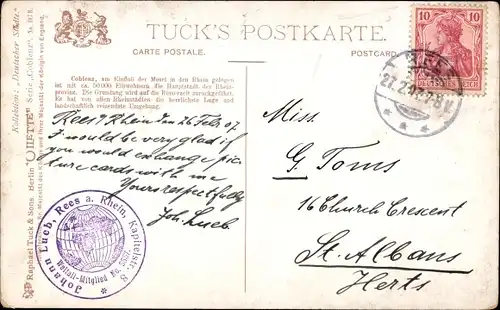 TUCK'S POSTKARTE.
CARTE POSTALE.
POSTCARD
Coblenz, am Einfluß der Mosel in den Rhein gelegen,
ist mit ca. 50.000 Einwohnern die Hauptstadt der Rhein-
provinz. Die Gründung wird auf die Römerzeit zurückgeführt.
Es hat von allen Rheinstädten die herrlichste Lage und
landschaftlich reizendste Umgebung.
Rees a/Rhein den 26 Febr. 07.
I would be very glad if
you would exchange pic-
ture cards with me
Yours respectfully
Joh. Lueb.
Johann Lueb, Rees a. Rhein, Kapitelstr. 8
Weltall-Mitglied No.
Raphael Tuck & Sons Berlin "OILETTE" Serie "Coblenz"
Künstlern: "Deutscher Städte"
10
10
DEUTSCHES REICH
REES
27.2.07.
Miss.
G Toms
16 Church Crescent
St. Albans
Herts